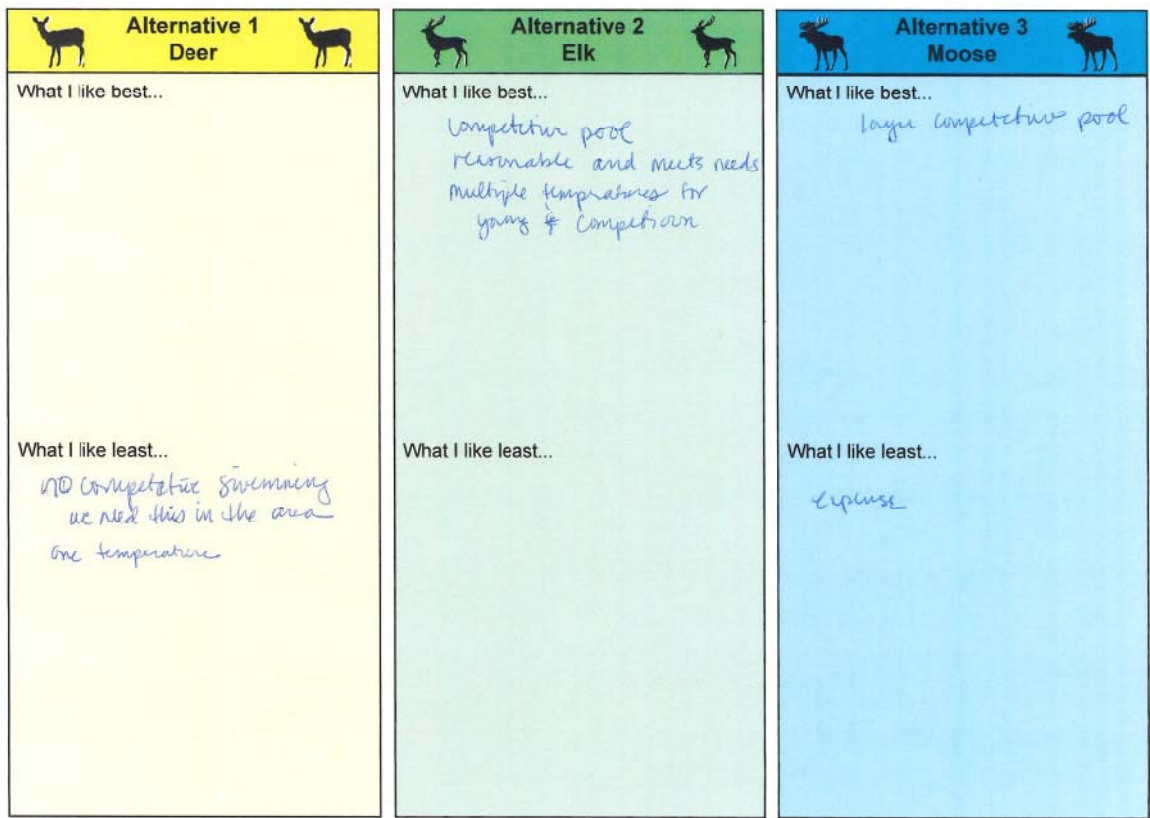 Alternative 1
Deer
What I like best...
What I like least...
no competetive swimming
we need this in the area
one temperature
Alternative 2
Elk
What I like best...
competetive pool
reasonable and meets needs
multiple temperatures for
young & competision
What I like least...
Alternative 3
Moose
What I like best...
larger competetive pool
What I like least...
expense